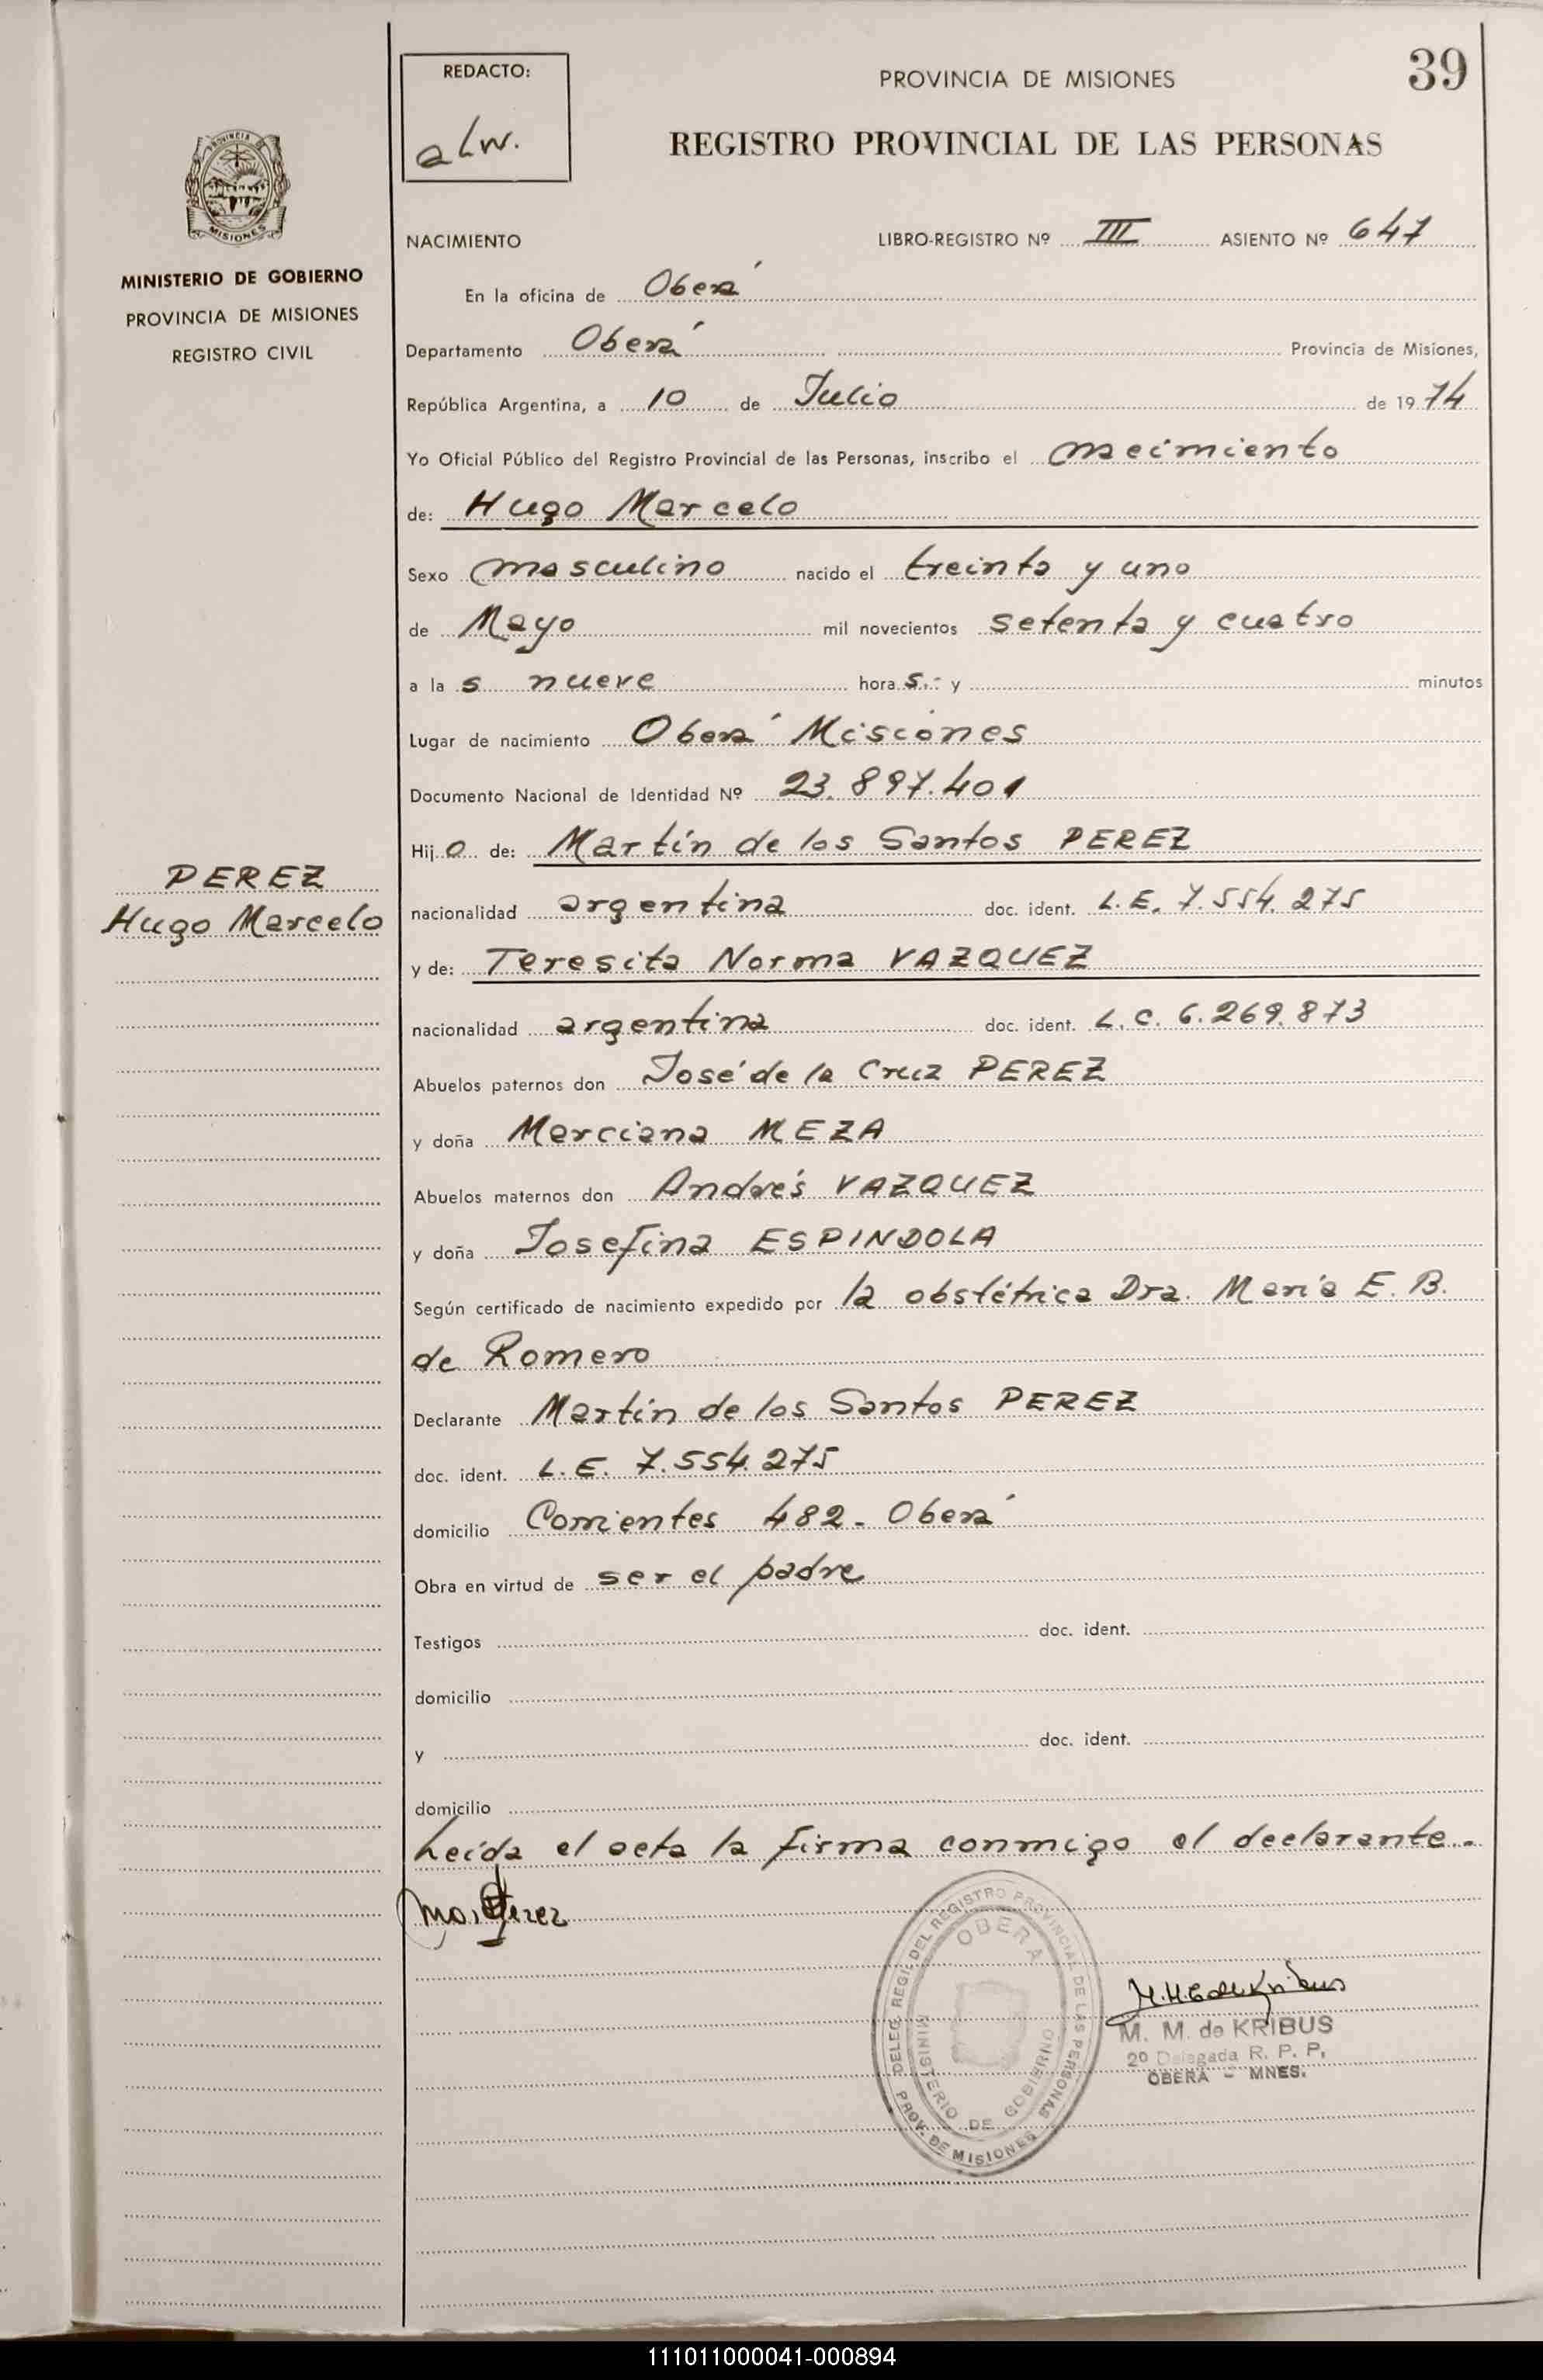 REDACTO:
aLw.
PROVINCIA DE MISIONES
39
REGISTRO PROVINCIAL DE LAS PERSONAS
PROVINCIA
MISIONES
MINISTERIO DE GOBIERNO
PROVINCIA DE MISIONES
REGISTRO CIVIL
NACIMIENTO LIBRO-REGISTRO Nº III ASIENTO Nº 647
En la oficina de Oberá
Departamento Oberá Provincia de Misiones,
República Argentina, a 10 de Julio de 1974
Yo Oficial Público del Registro Provincial de las Personas, inscribo el nacimiento
de: Hugo Marcelo
Sexo masculino nacido el treinta y uno
de Mayo mil novecientos setenta y cuatro
a la s nueve hora s.- y minutos
Lugar de nacimiento Oberá Misiones
Documento Nacional de Identidad Nº 23.897.401
Hij o de: Martín de los Santos PEREZ
PEREZ
Hugo Marcelo
nacionalidad argentina doc. ident. L.E. 7.554.275
y de: Teresita Norma VAZQUEZ
nacionalidad argentina doc. ident. L.C. 6.269.873
Abuelos paternos don José de la Cruz PEREZ
y doña Marciana MEZA
Abuelos maternos don Andrés VAZQUEZ
y doña Josefina ESPINDOLA
Según certificado de nacimiento expedido por la obstétrica Dra. María E. B.
de Romero
Declarante Martín de los Santos PEREZ
doc. ident. L.E. 7.554.275
domicilio Corrientes 482- Oberá
Obra en virtud de ser el padre
Testigos doc. ident.
domicilio
y doc. ident.
domicilio
Leída el acta la firma conmigo el declarante.-
DELEG. REGI. DEL REGISTRO PROVINCIAL DE LAS PERSONAS
OBERA
MINISTERIO DE GOBIERNO
PROV. DE MISIONES
M. M. de KRIBUS
2º Delegada R. P. P.
OBERA - MNES.
111011000041-000894